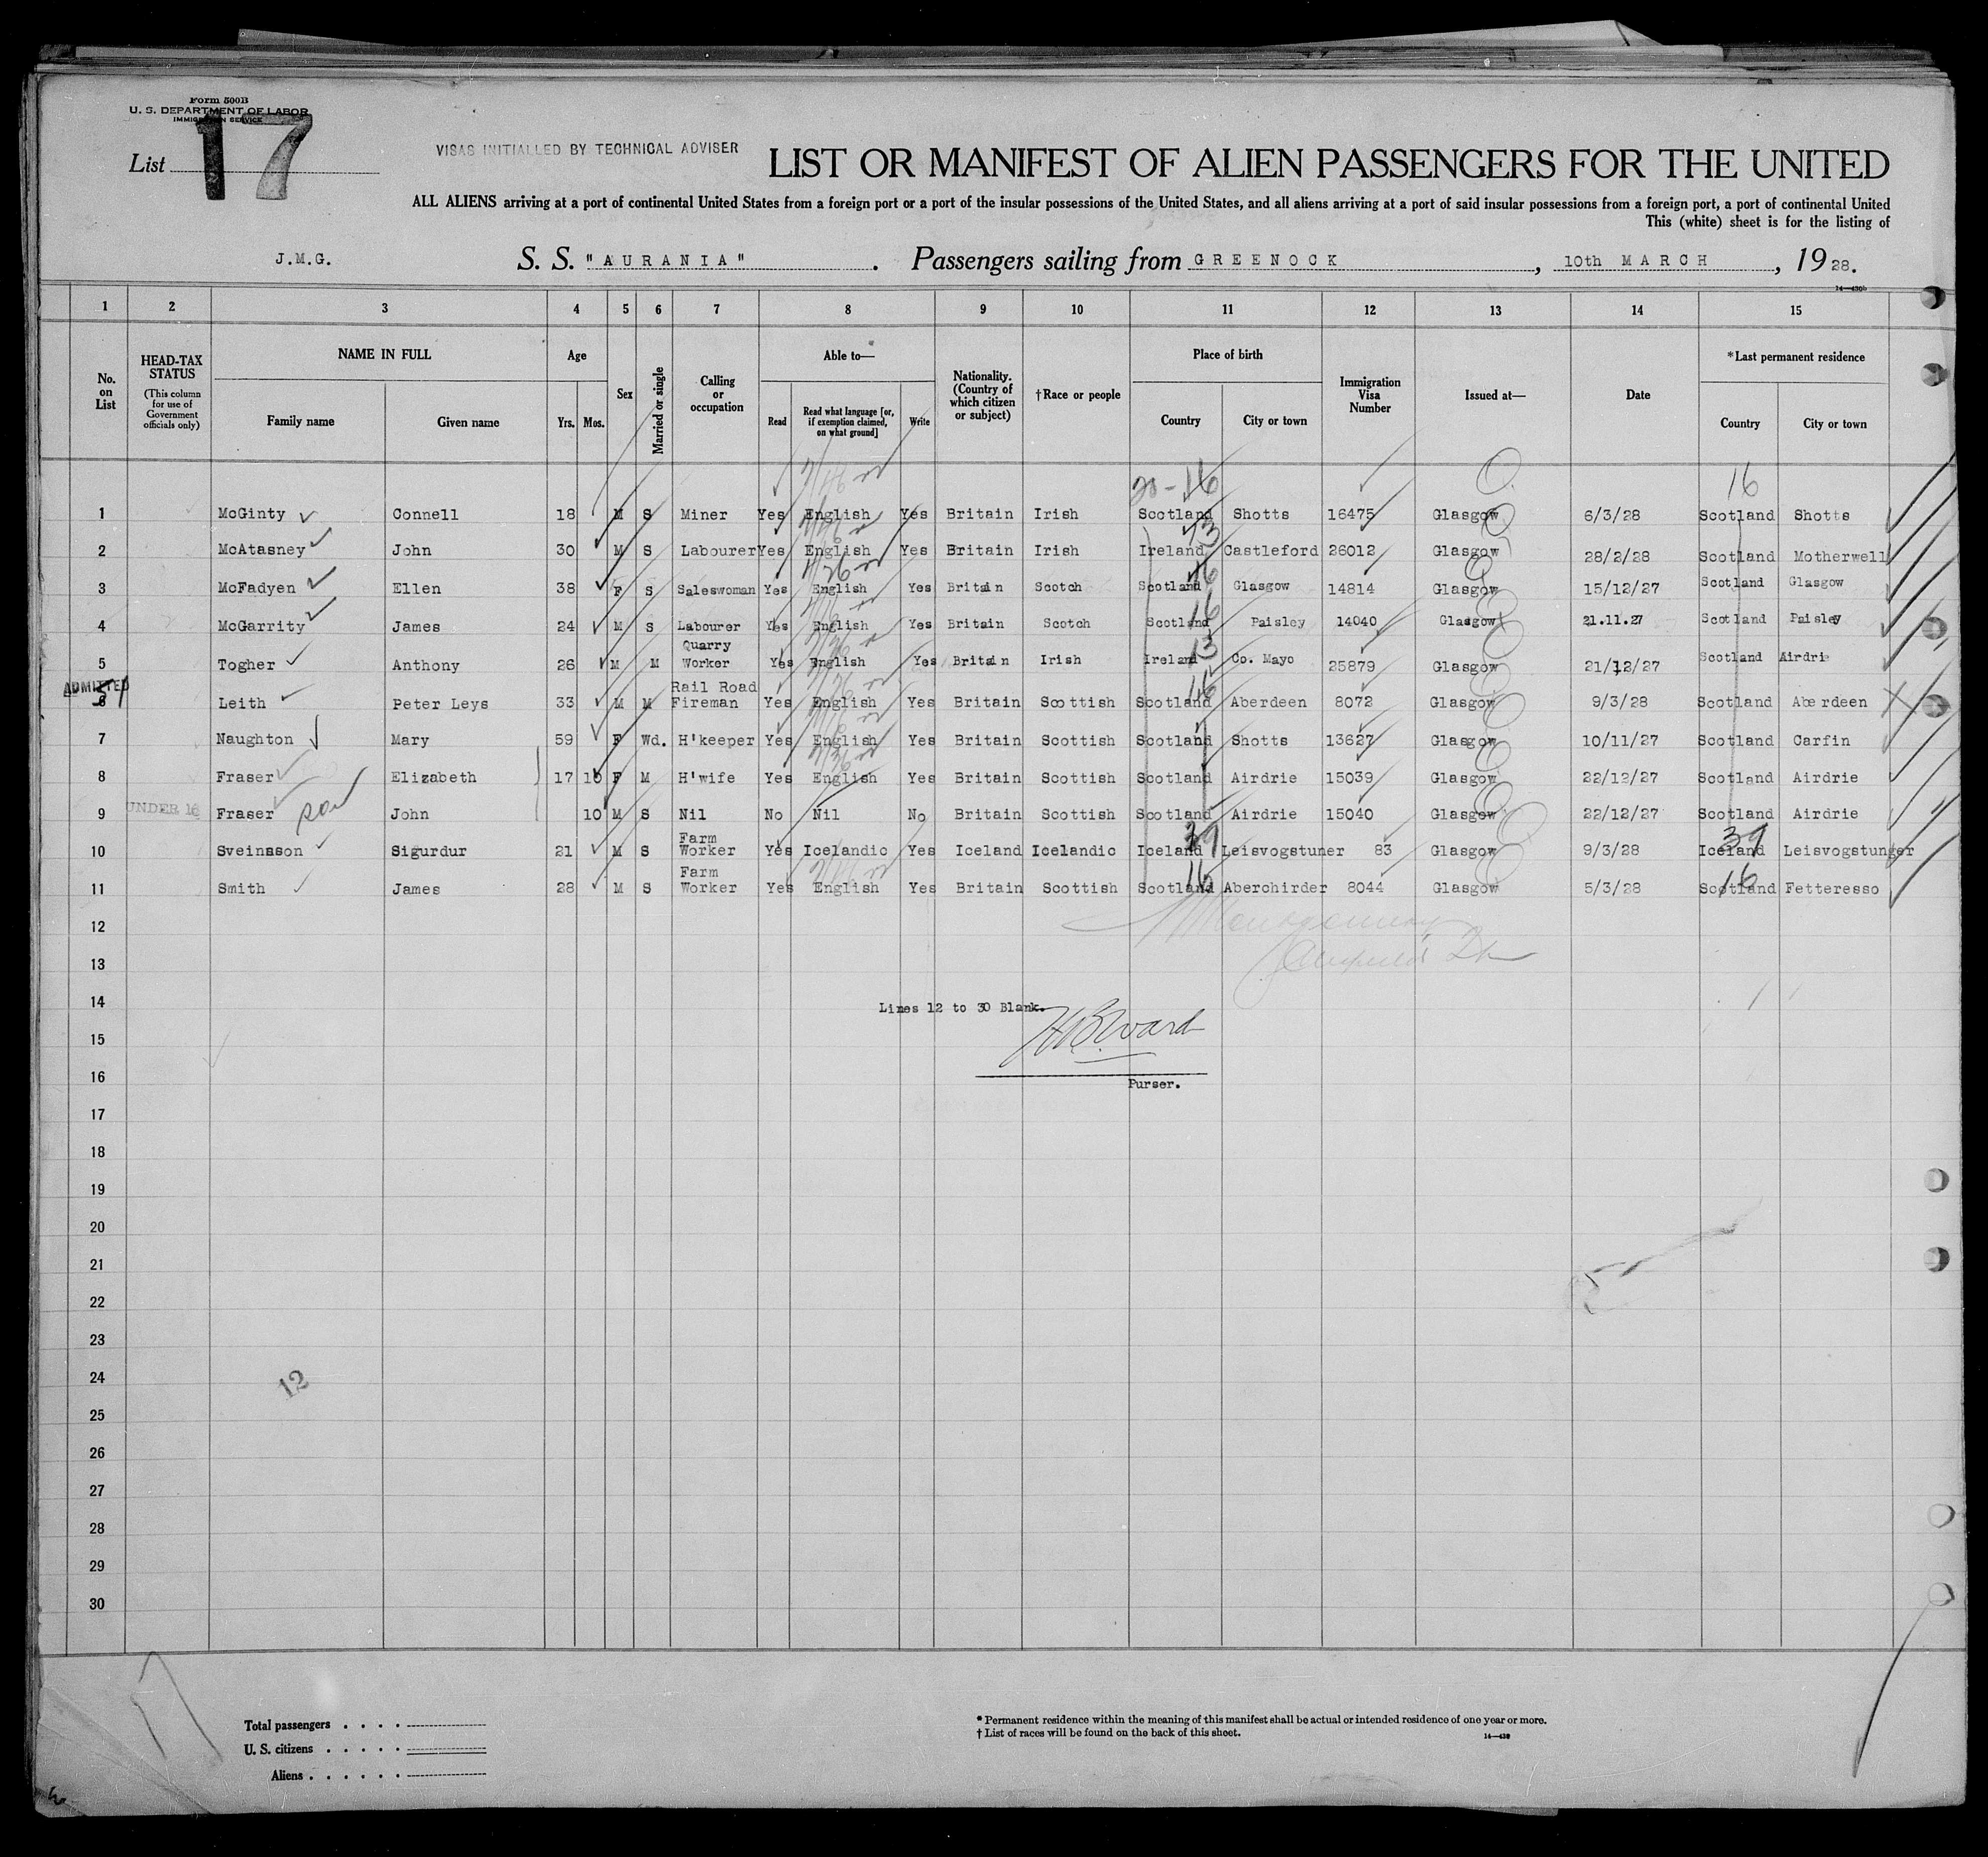 Form 500B
U. S. DEPARTMENT OF LABOR
IMMIGRATION SERVICE
List 17
VISAS INITIALLED BY TECHNICAL ADVISER
LIST OR MANIFEST OF ALIEN PASSENGERS FOR THE UNITED
ALL ALIENS arriving at a port of continental United States from a foreign port or a port of the insular possessions of the United States, and all aliens arriving at a port of said insular possessions from a foreign port, a port of continental United
This (white) sheet is for the listing of
J.M.G. S. S. "AURANIA". Passengers sailing from GREENOCK, 10th MARCH, 1928.
14—430b
1 2 3 4 5 6 7 8 9 10 11 12 13 14 15
No. on List
HEAD-TAX STATUS
(This column for use of Government officials only)
NAME IN FULL
Family name Given name
Age
Yrs. Mos.
Sex
Married or single
Calling or occupation
Able to—
Read
Read what language [or, if exemption claimed, on what ground]
Write
Nationality. (Country of which citizen or subject)
†Race or people
Place of birth
Country City or town
Immigration Visa Number
Issued at—
Date
*Last permanent residence
Country City or town
20-16 16
1 McGinty Connell 18 M S Miner Yes English Yes Britain Irish Scotland Shotts 16475 Glasgow 6/3/28 Scotland Shotts
13
2 McAtasney John 30 M S Labourer Yes English Yes Britain Irish Ireland Castleford 26012 Glasgow 28/2/28 Scotland Motherwell
16
3 McFadyen Ellen 38 F S Saleswoman Yes English Yes Britain Scotch Scotland Glasgow 14814 Glasgow 15/12/27 Scotland Glasgow
16
4 McGarrity James 24 M S Labourer Yes English Yes Britain Scotch Scotland Paisley 14040 Glasgow 21.11.27 Scotland Paisley
13
5 Togher Anthony 26 M M Quarry Worker Yes English Yes Britain Irish Ireland Co. Mayo 25879 Glasgow 21/12/27 Scotland Airdrie
ADMITTED
16
6 Leith Peter Leys 33 M M Rail Road Fireman Yes English Yes Britain Scottish Scotland Aberdeen 8072 Glasgow 9/3/28 Scotland Aberdeen
7 Naughton Mary 59 F Wd. H'keeper Yes English Yes Britain Scottish Scotland Shotts 13627 Glasgow 10/11/27 Scotland Carfin
8 Fraser Elizabeth 17 10 F M H'wife Yes English Yes Britain Scottish Scotland Airdrie 15039 Glasgow 22/12/27 Scotland Airdrie
9 UNDER 16 Fraser son John 10 M S Nil No Nil No Britain Scottish Scotland Airdrie 15040 Glasgow 22/12/27 Scotland Airdrie
39 39
10 Sveinsson Sigurdur 21 M S Farm Worker Yes Icelandic Yes Iceland Icelandic Iceland Leisvogstuner 83 Glasgow 9/3/28 Iceland Leisvogstunger
16 16
11 Smith James 28 M S Farm Worker Yes English Yes Britain Scottish Scotland Aberchirder 8044 Glasgow 5/3/28 Scotland Fetteresso
12
13
14
Lines 12 to 30 Blank.
15
16
Purser.
17
18
19
20
21
22
23
24
12
25
26
27
28
29
30
Total passengers
U. S. citizens
Aliens
* Permanent residence within the meaning of this manifest shall be actual or intended residence of one year or more.
† List of races will be found on the back of this sheet.
14—430